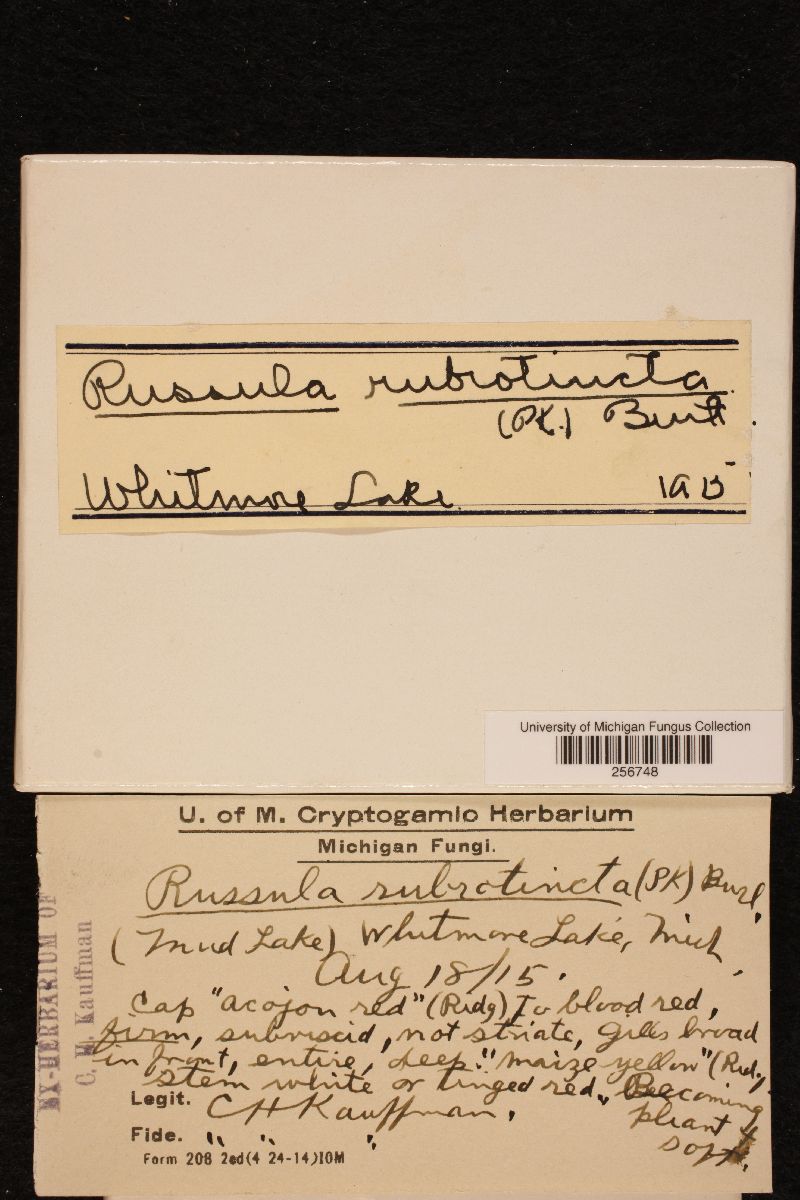 Russula rubrotincta
(PK.) Burt
Whitmore Lake. 1915
University of Michigan Fungus Collection
256748
U. of M. Cryptogamic Herbarium
Michigan Fungi.
Russula rubrotincta (PK) Burl.
(Mud Lake) Whitmore Lake, Mich.
Aug 18/15.
Cap "acajou red" (Ridg) to blood red,
firm, subviscid, not striate, Gills broad
in front, entire, deep "maize yellow" (Rid.)
Stem white or tinged red. Becoming
pliant &
soft.
Legit. CH Kauffman.
Fide. " " "
Form 208 2ed(4 24-14)10M
EX-HERBARIUM OF
C. H. Kauffman